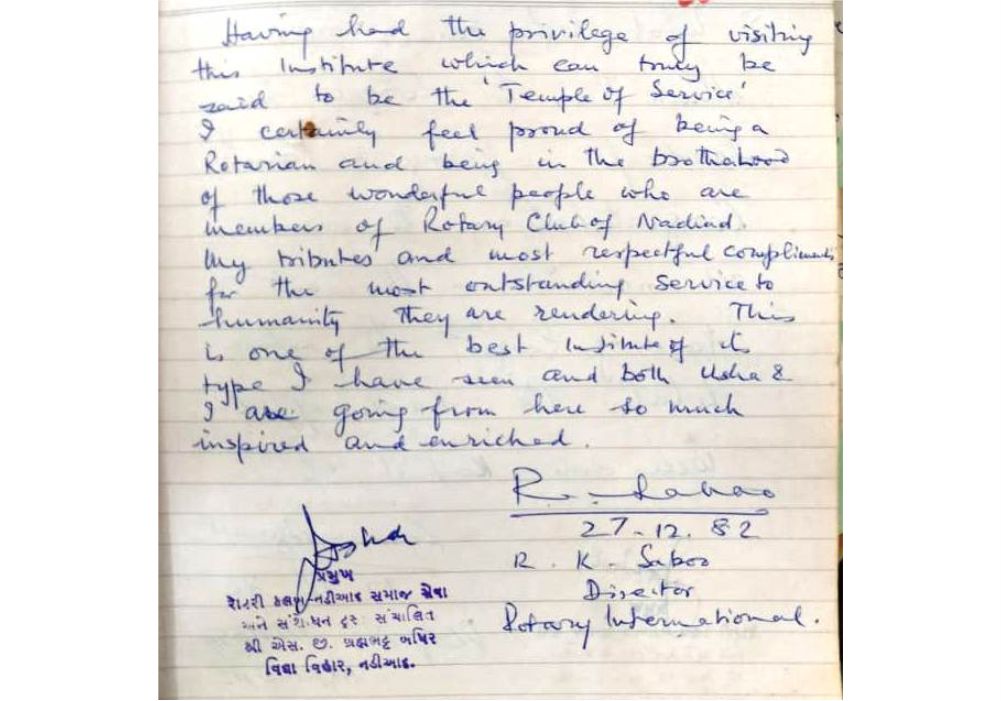 Having had the privilege of visiting
this Institute which can truly be
said to be the 'Temple of Service'
I certainly feel proud of being a
Rotarian and being in the brotherhood
of those wonderful people who are
members of Rotary Club of Nadiad.
My tributes and most respectful compliments
for the most outstanding service to
humanity they are rendering. This
is one of the best Institute of its
type I have seen and both Usha &
I are going from here so much
inspired and enriched.
27-12.82
R. K. Saboo
Director
Rotary International.
પ્રમુખ
રોટરી ક્લબ નડીઆદ સમાજ સેવા
અને સંશોધન ટ્રસ્ટ સંચાલિત
શ્રી એસ. જી. બ્રહ્મભટ્ટ બધિર
વિદ્યા વિહાર, નડીઆદ.